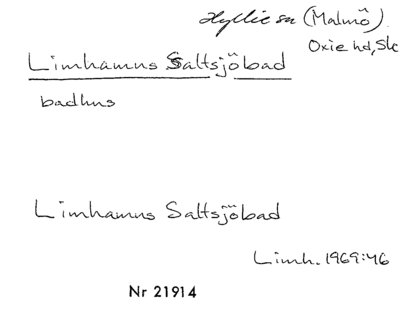 Hyllie sn (Malmö)
Oxie hd, Sk
Limhamns Saltsjöbad
badhus
Limhamns Saltsjöbad
Limh. 1969:46
Nr 21914